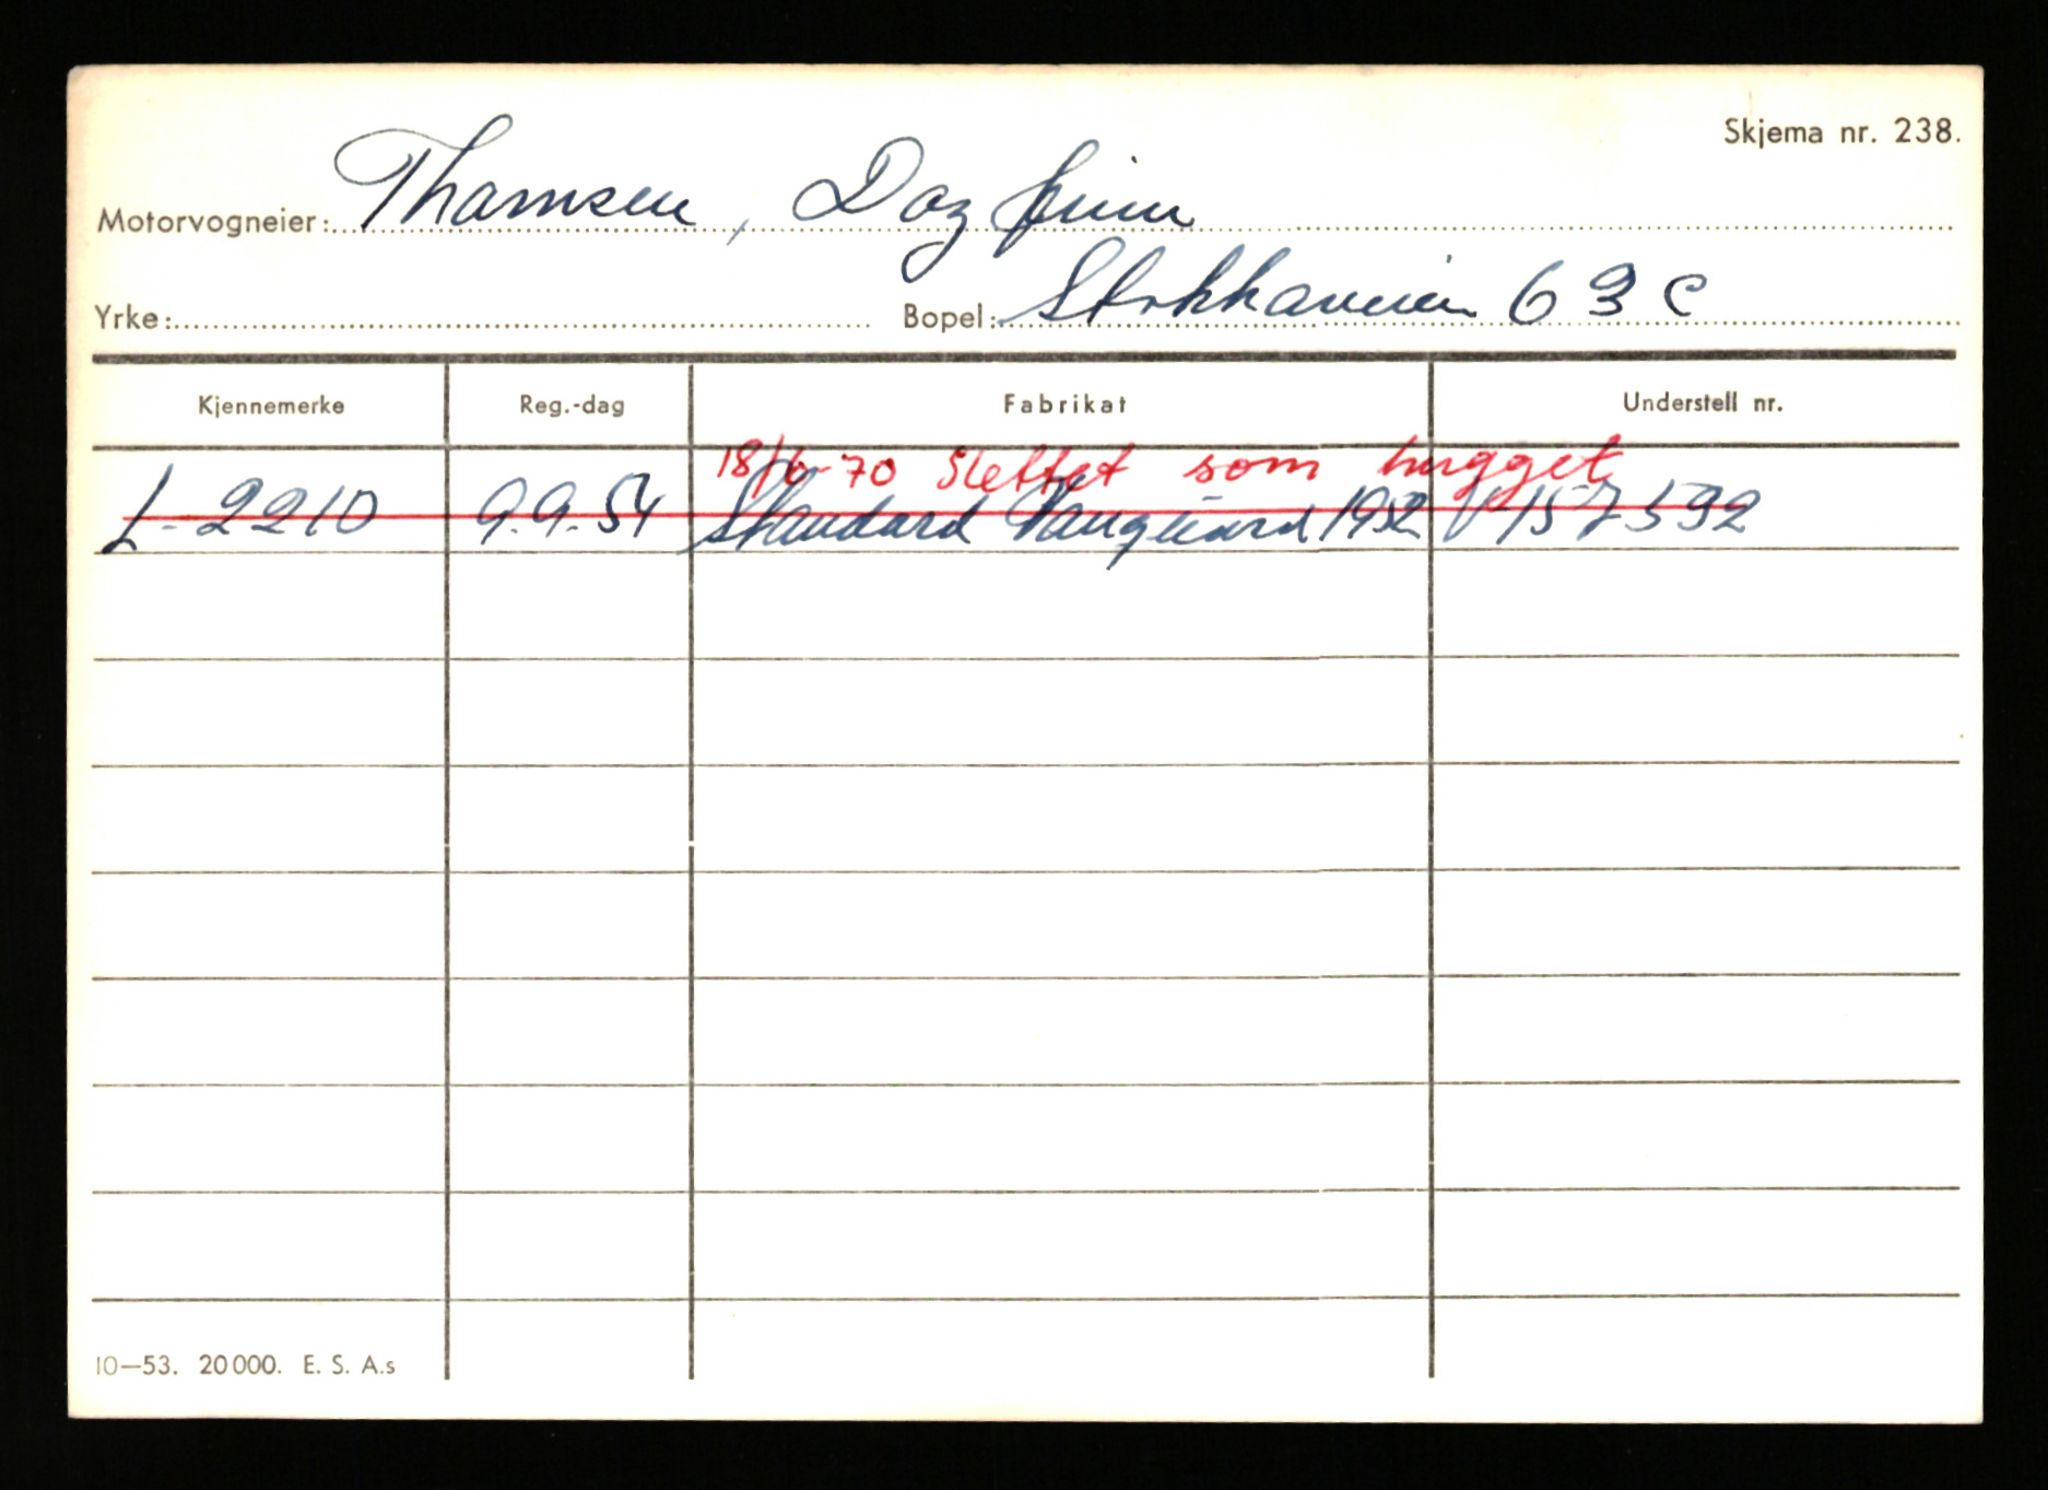 Skjema nr. 238.
Motorvogneier: Thamsen, Dagfinn
Yrke: Bopel: Stokkaveien 63 c
Kjennemerke Reg.-dag Fabrikat Understell nr.
18/6-70 Slettet som hugget
L-2210 9.9.54 Standard Vanguard 1952 V 157592
10—53. 20000. E. S. A.s